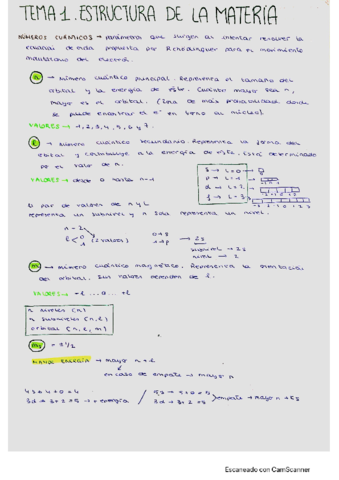 TEMA 1. ESTRUCTURA DE LA MATERIA
NÚMEROS CUÁNTICOS → parámetros que surgen al intentar resolver la
ecuación de onda propuesta por Schrödinger para el movimiento
ondulatorio del electrón.
n → número cuántico principal. Representa el tamaño del
orbital y la energía de este. Cuanto mayor sea n,
mayor es el orbital. (Zona de más probabilidad donde
se puede encontrar el e⁻ en torno al núcleo)
VALORES → 1, 2, 3, 4, 5, 6 y 7.
l → número cuántico secundario. Representa la forma del
orbital y contribuye a la energía de este. Está determinado
por el valor de n.
VALORES → desde 0 hasta n-1
s → L=0
p → L=1
d → L=2
f → L=3
El par de valores de n y L
representa un subnivel y n solo representa un nivel.
n = 2
l < 0 1 (2 valores)
0 → s
1 → p
→ 2s
subnivel → 2s
nivel → 2
m → número cuántico magnético. Representa la orientación
del orbital. Sus valores dependen de l.
VALORES → -l ... 0 ... +l
n niveles (n)
n subniveles (n, l)
orbital (n, l, m)
ms = ± 1/2
MAYOR ENERGÍA → mayor n + l
en caso de empate → mayor n
4s → 4 + 0 = 4
3d → 3 + 2 = 5 → + energía
5s → 5 + 0 = 5
3d → 3 + 2 = 5
empate → mayor n → 5s
Escaneado con CamScanner